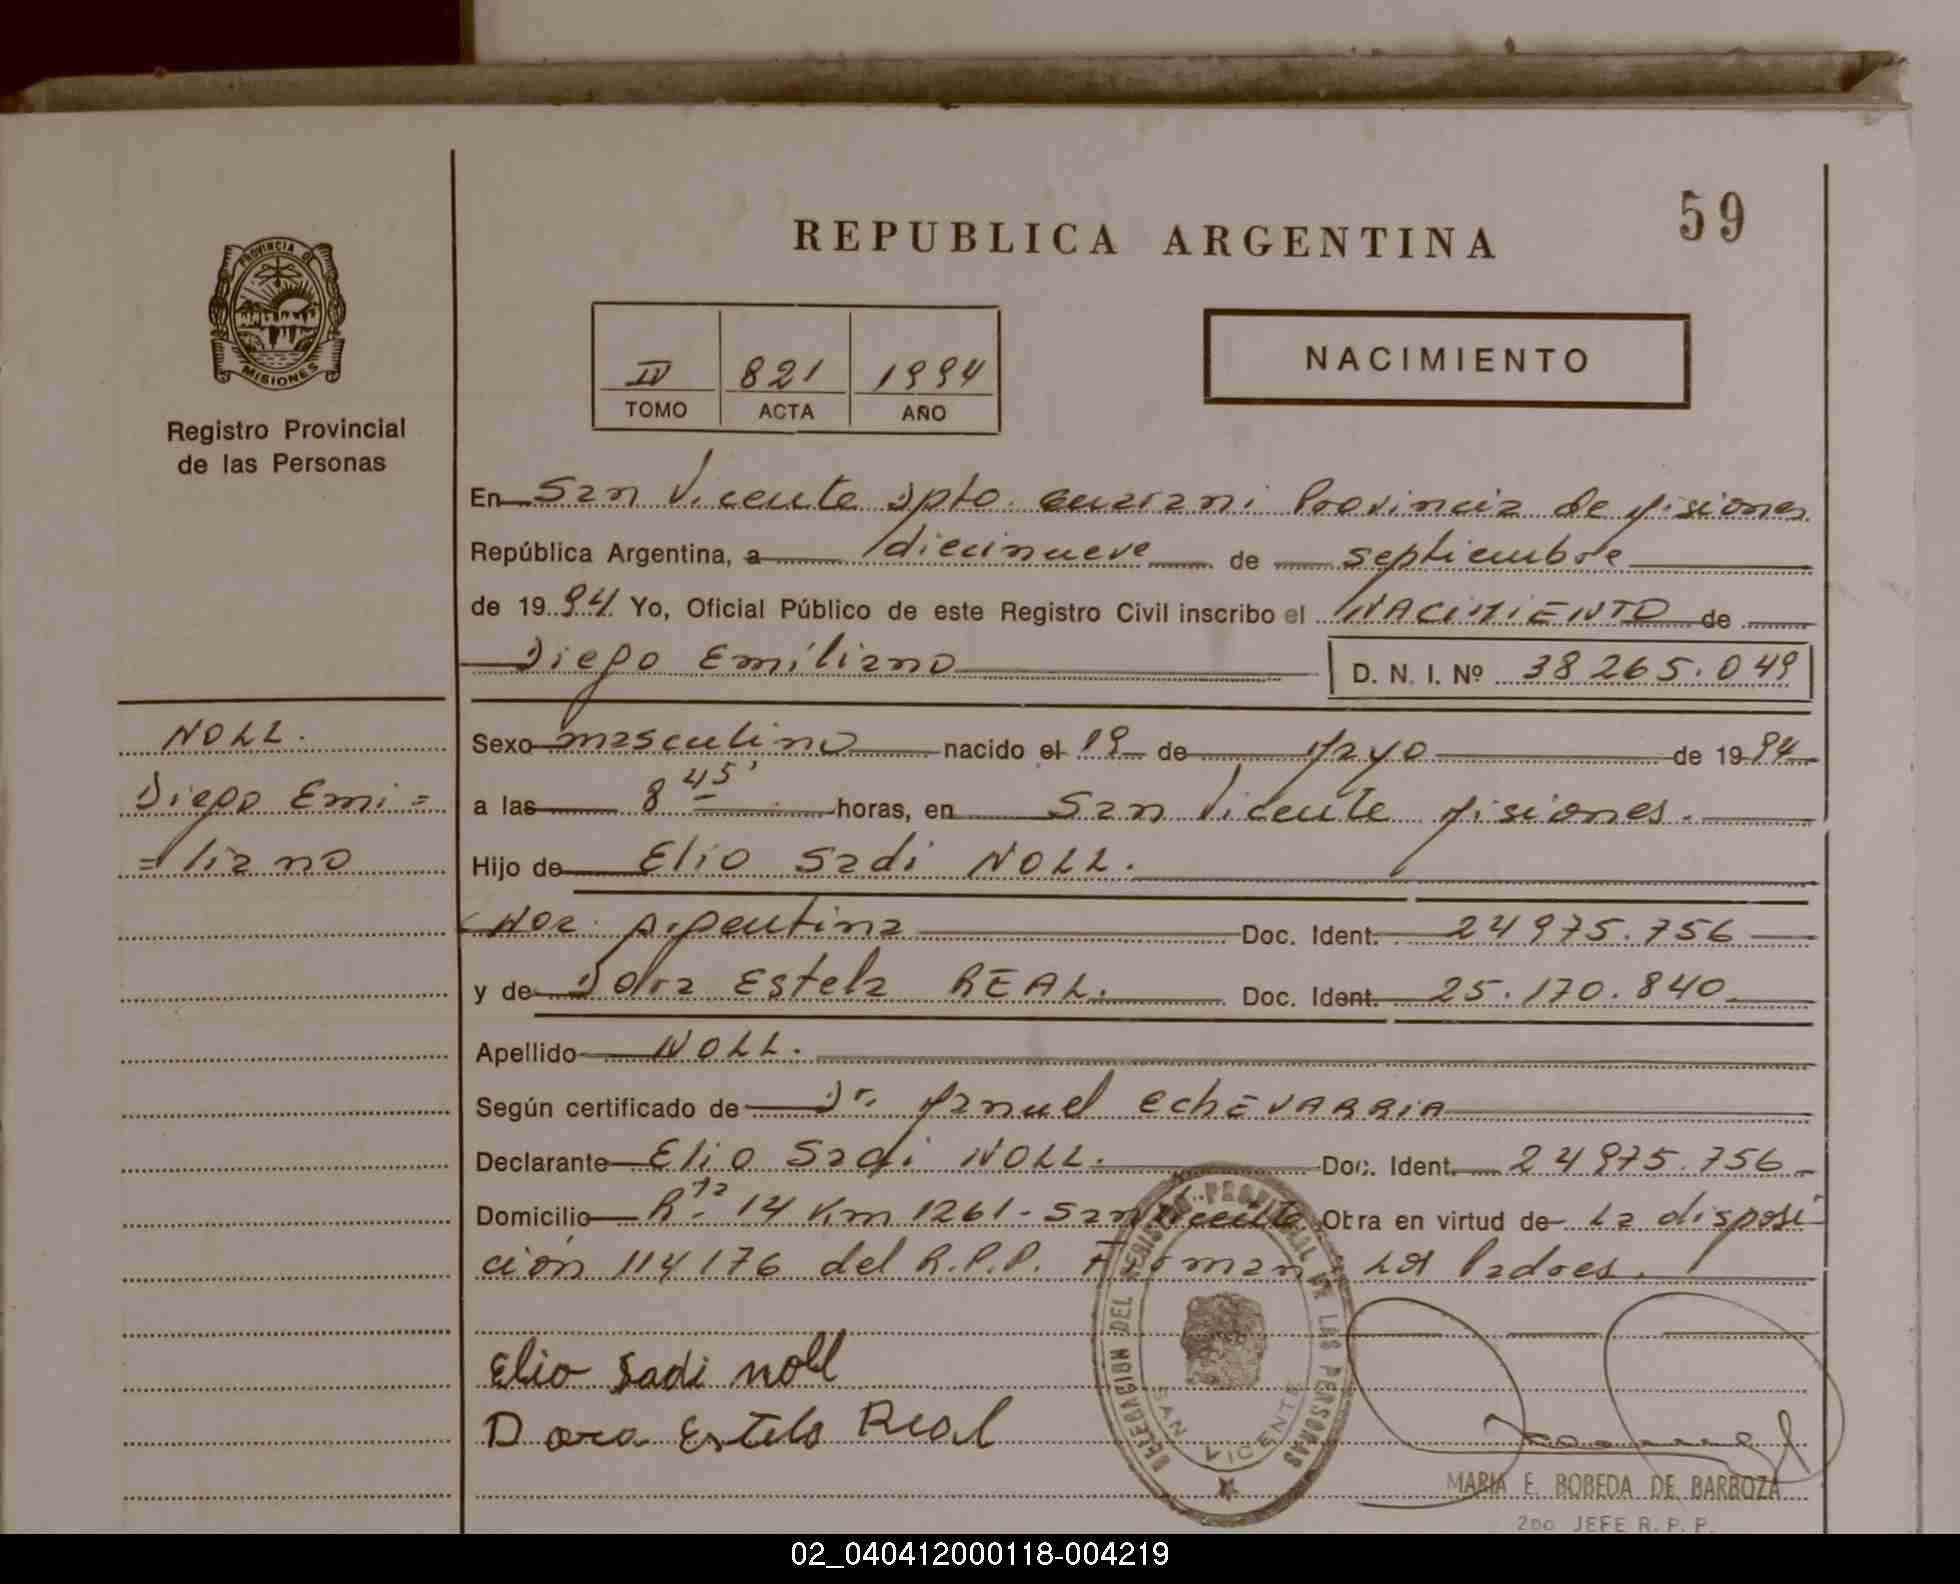 59
REPUBLICA ARGENTINA
PROVINCIA DE
MISIONES
Registro Provincial
de las Personas
IV 821 1994
TOMO ACTA AÑO
NACIMIENTO
En San Vicente Dpto. Guarani Provincia de Misiones
República Argentina, a diecinueve de septiembre
de 19 94 Yo, Oficial Público de este Registro Civil inscribo el NACIMIENTO de
Diego Emiliano D. N. I. Nº 38265.049
NOLL.
Diego Emi=
=liano
Sexo masculino nacido el 19 de Mayo de 19 94
a las 8 45' horas, en San Vicente Misiones.
Hijo de Elio Sadi NOLL.
Nac. Argentina Doc. Ident. 24975.756
y de Dora Estela REAL. Doc. Ident. 25.170.840
Apellido NOLL.
Según certificado de Dr. Manuel EchEVARRIA
Declarante Elio Sadi NOLL. Doc. Ident. 24975.756
Domicilio Rta 14 Km 1261 - San Vicente Obra en virtud de La disposi
ción 114/76 del R.P.P. Firman Los Padres.
Elio Sadi noll
Dora Estela Real
DELEGACION DEL REGISTRO PROVINCIAL DE LAS PERSONAS
SAN VICENTE
MARIA E. BOBEDA DE BARBOZA
2do JEFE R. P. P.
02_040412000118-004219